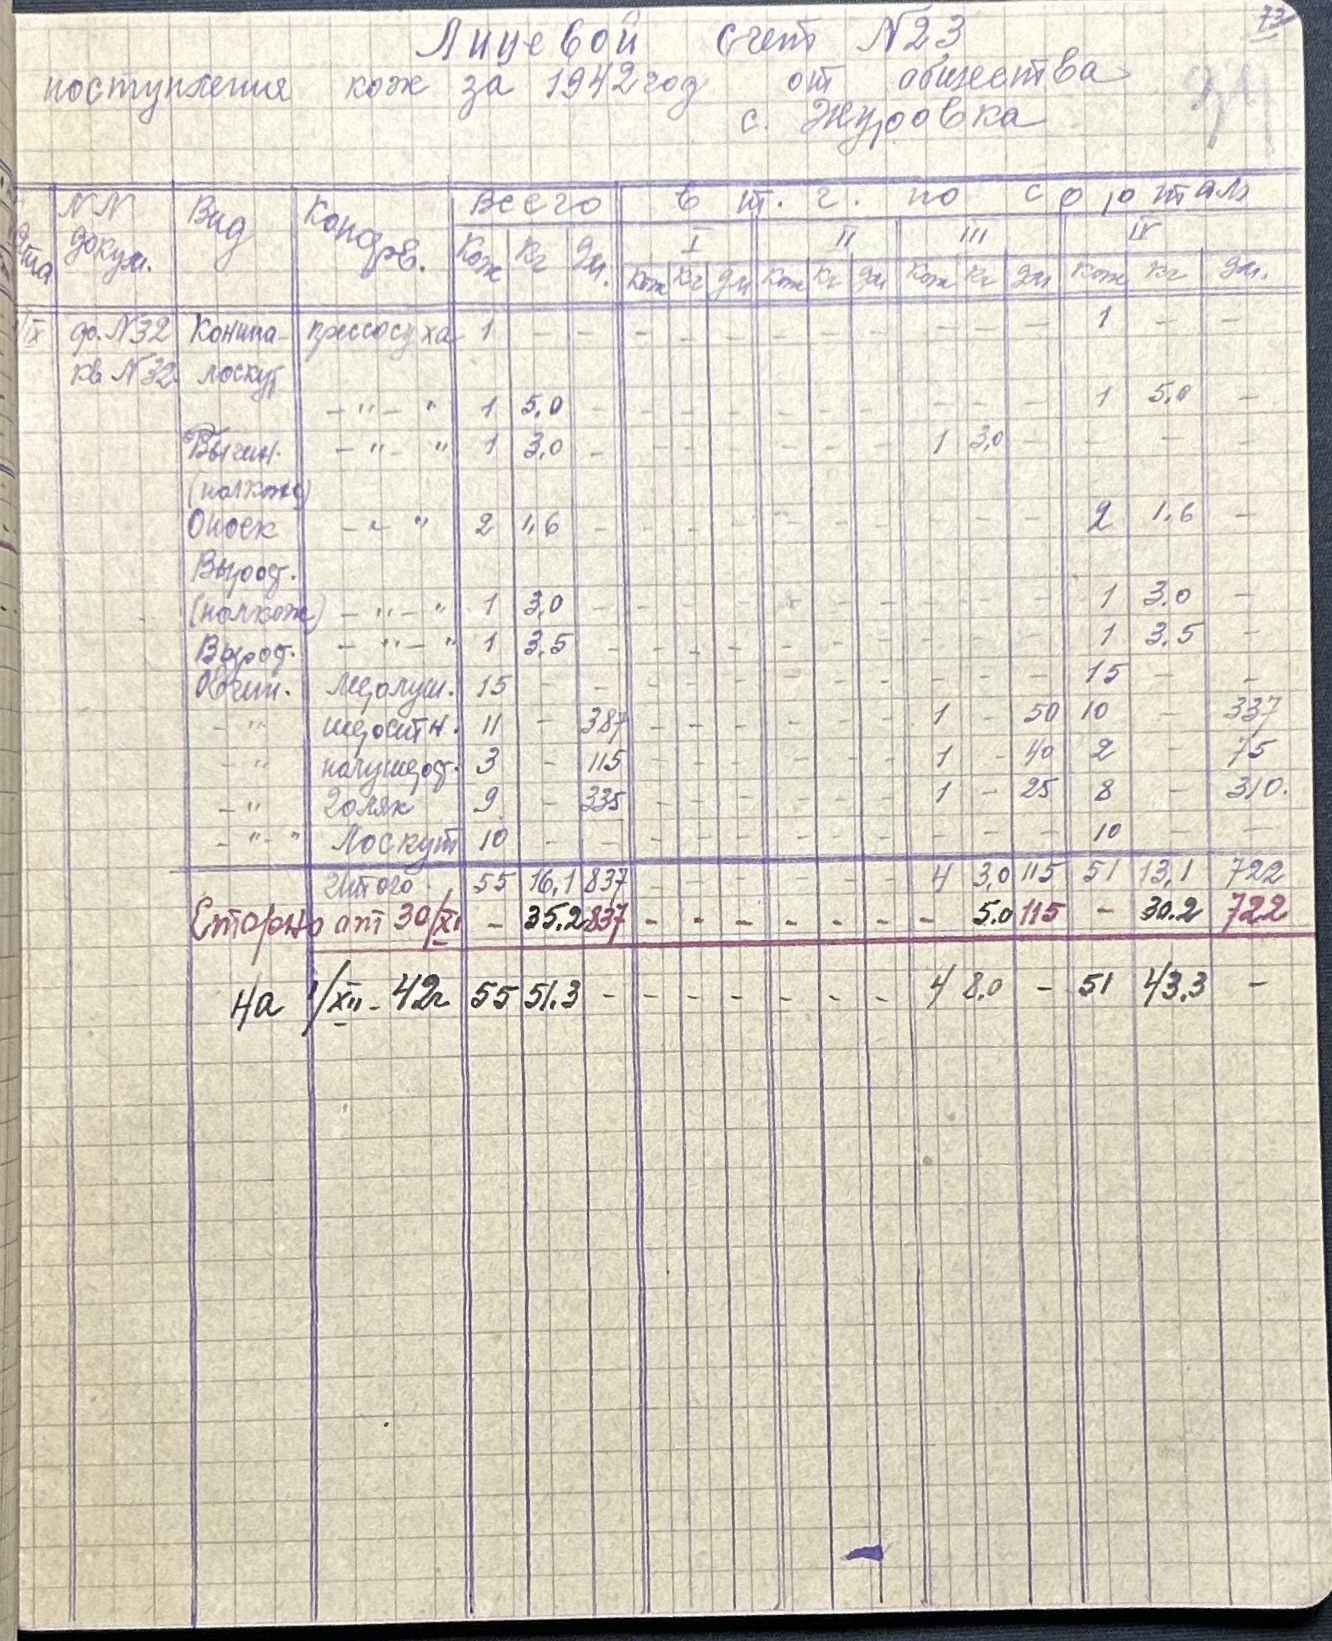 73
Лицевой счет N23
поступления кож за 1942 год от общества
с. Журовка
Дата NN докум. Вид Консерв. Всего в т. г. по сортам
Кож Кг Дм. I II III IV
Кож Кг Дм Кож Кг Дм Кож Кг Дм Кож Кг Дм.
/IX ор. N32 Конина пресосуха 1 - - - - - - - - - - - 1 - -
кв N32 лоскут
- " - " 1 5,0 - - - - - - - - - - 1 5,0 -
Бычин. - " - " 1 3,0 - - - - - - - 1 3,0 - - - -
(полкожа)
Опоек - " - " 2 1,6 - - - - - - - - - - 2 1,6 -
Вырос.
(полкож) - " - " 1 3,0 - - - - - - - - - - 1 3.0 -
Вырос. - " - " 1 3,5 - - - - - - - - - - 1 3,5 -
Овчин. 15 - - - - - - - - - - - 15 - -
- " шерстн. 11 - 387 - - - - - - 1 - 50 10 - 337
- " полушерст. 3 - 115 - - - - - - 1 - 40 2 - 75
- " голяк 9 - 335 - - - - - - 1 - 25 8 - 310.
- " - " Лоскут 10 - - - - - - - - - - - 10 - -
Итого 55 16,1 837 - - - - - - 4 3,0 115 51 13,1 722
Сторно от 30/XI - 35.2 837 - - - - - - - 5.0 115 - 30.2 722
на 1/XII - 42г 55 51.3 - - - - - - - 4 8.0 - 51 43.3 -